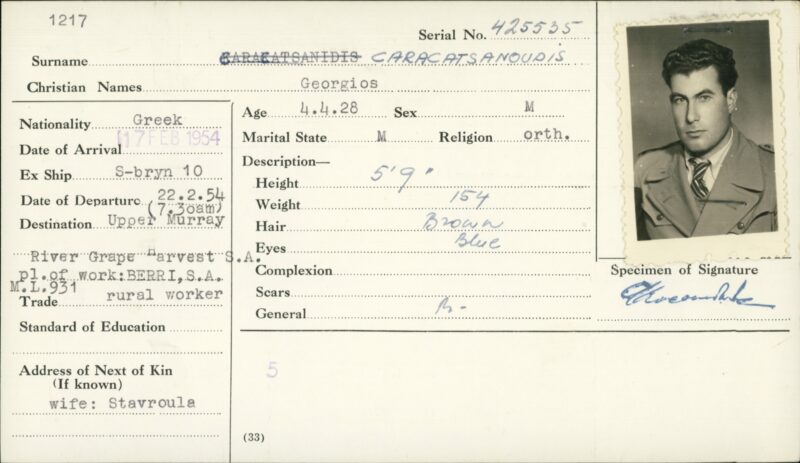 1217
Serial No. 425535
Surname CARACATSANIDIS CARACATSANOUDIS
Christian Names Georgios
Nationality Greek
Date of Arrival 17 FEB 1954
Ex Ship S-bryn 10
Date of Departure 22.2.54
(7.30am)
Destination Upper Murray
River Grape Harvest S.A.
pl.of work:BERRI,S.A.
M.L.931
Trade rural worker
Standard of Education
Address of Next of Kin
(If known)
wife: Stavroula
Age 4.4.28 Sex M
Marital State M Religion orth.
Description—
Height 5'9"
Weight 154
Hair Brown
Eyes Blue
Complexion
Scars
General B-
5
(33)
Specimen of Signature